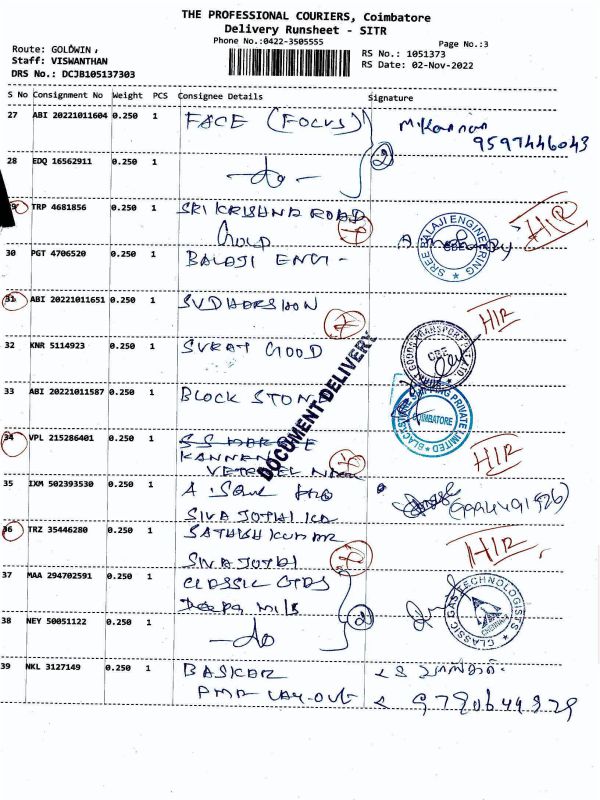 THE PROFESSIONAL COURIERS, Coimbatore
Delivery Runsheet - SITR
Phone No.:0422-3505555
Page No.:3
Route: GOLDWIN,
Staff: VISWANTHAN
DRS No.: DCJB105137303
RS No.: 1051373
RS Date: 02-Nov-2022
S No Consignment No Weight PCS Consignee Details Signature
27 ABI 20221011604 0.250 1 FACE (FOCUS) M.Kannan
9597446043
2
28 EDQ 16562911 0.250 1 -do-
29 TRP 4681856 0.250 1 SRI KRISHNA ROAD
HIR
30 PGT 4706520 0.250 1 BALAJI ENGI -
SREE BALAJI ENGINEERING
CBE
31 ABI 20221011651 0.250 1 SUDHARSHAN
HIR
32 KNR 5114923 0.250 1 SURAT GOOD
GOODS TRANSPORT
CBE
33 ABI 20221011587 0.250 1 BLOCK STONE
BLACKSTONE SHIPPING PRIVATE LIMITED
COIMBATORE
DOCUMENT DELIVERY
34 VPL 215286401 0.250 1
KANNAN
HIR
35 IXM 502393530 0.250 1
SIVA JOTHI
36 TRZ 35446280 0.250 1 SATHISH KUMAR
SIVA JOTHI
HIR
37 MAA 294702591 0.250 1 CLASSIC
Deepa Mills
CLASSIC GAS TECHNOLOGISTS
2
38 NEY 50051122 0.250 1 -do
39 NKL 3127149 0.250 1 BASKAR
PMR LAY-OUT